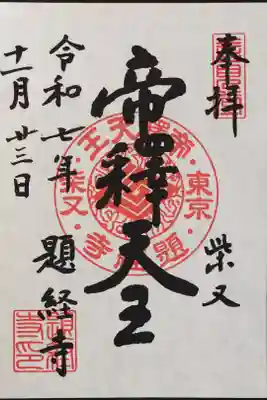 奉拝
柴又
帝釋天王
帝釋天王
東京
題経寺
柴又
令和七年
題経寺
十二月廿三日